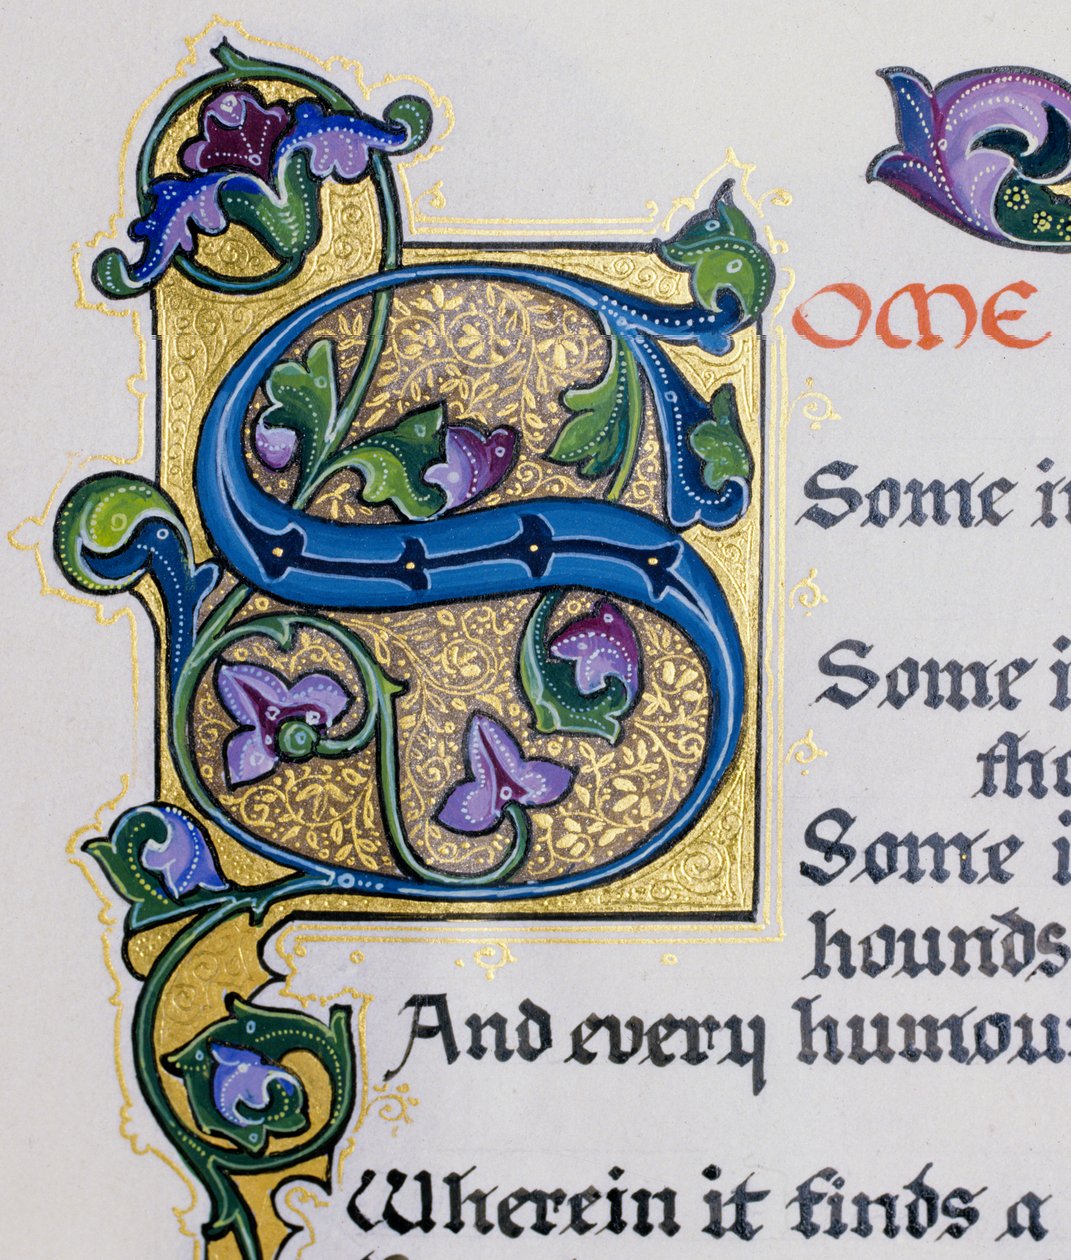 S
OME
Some i
Some i
tho
Some i
hounds
And every humou
Wherein it finds a